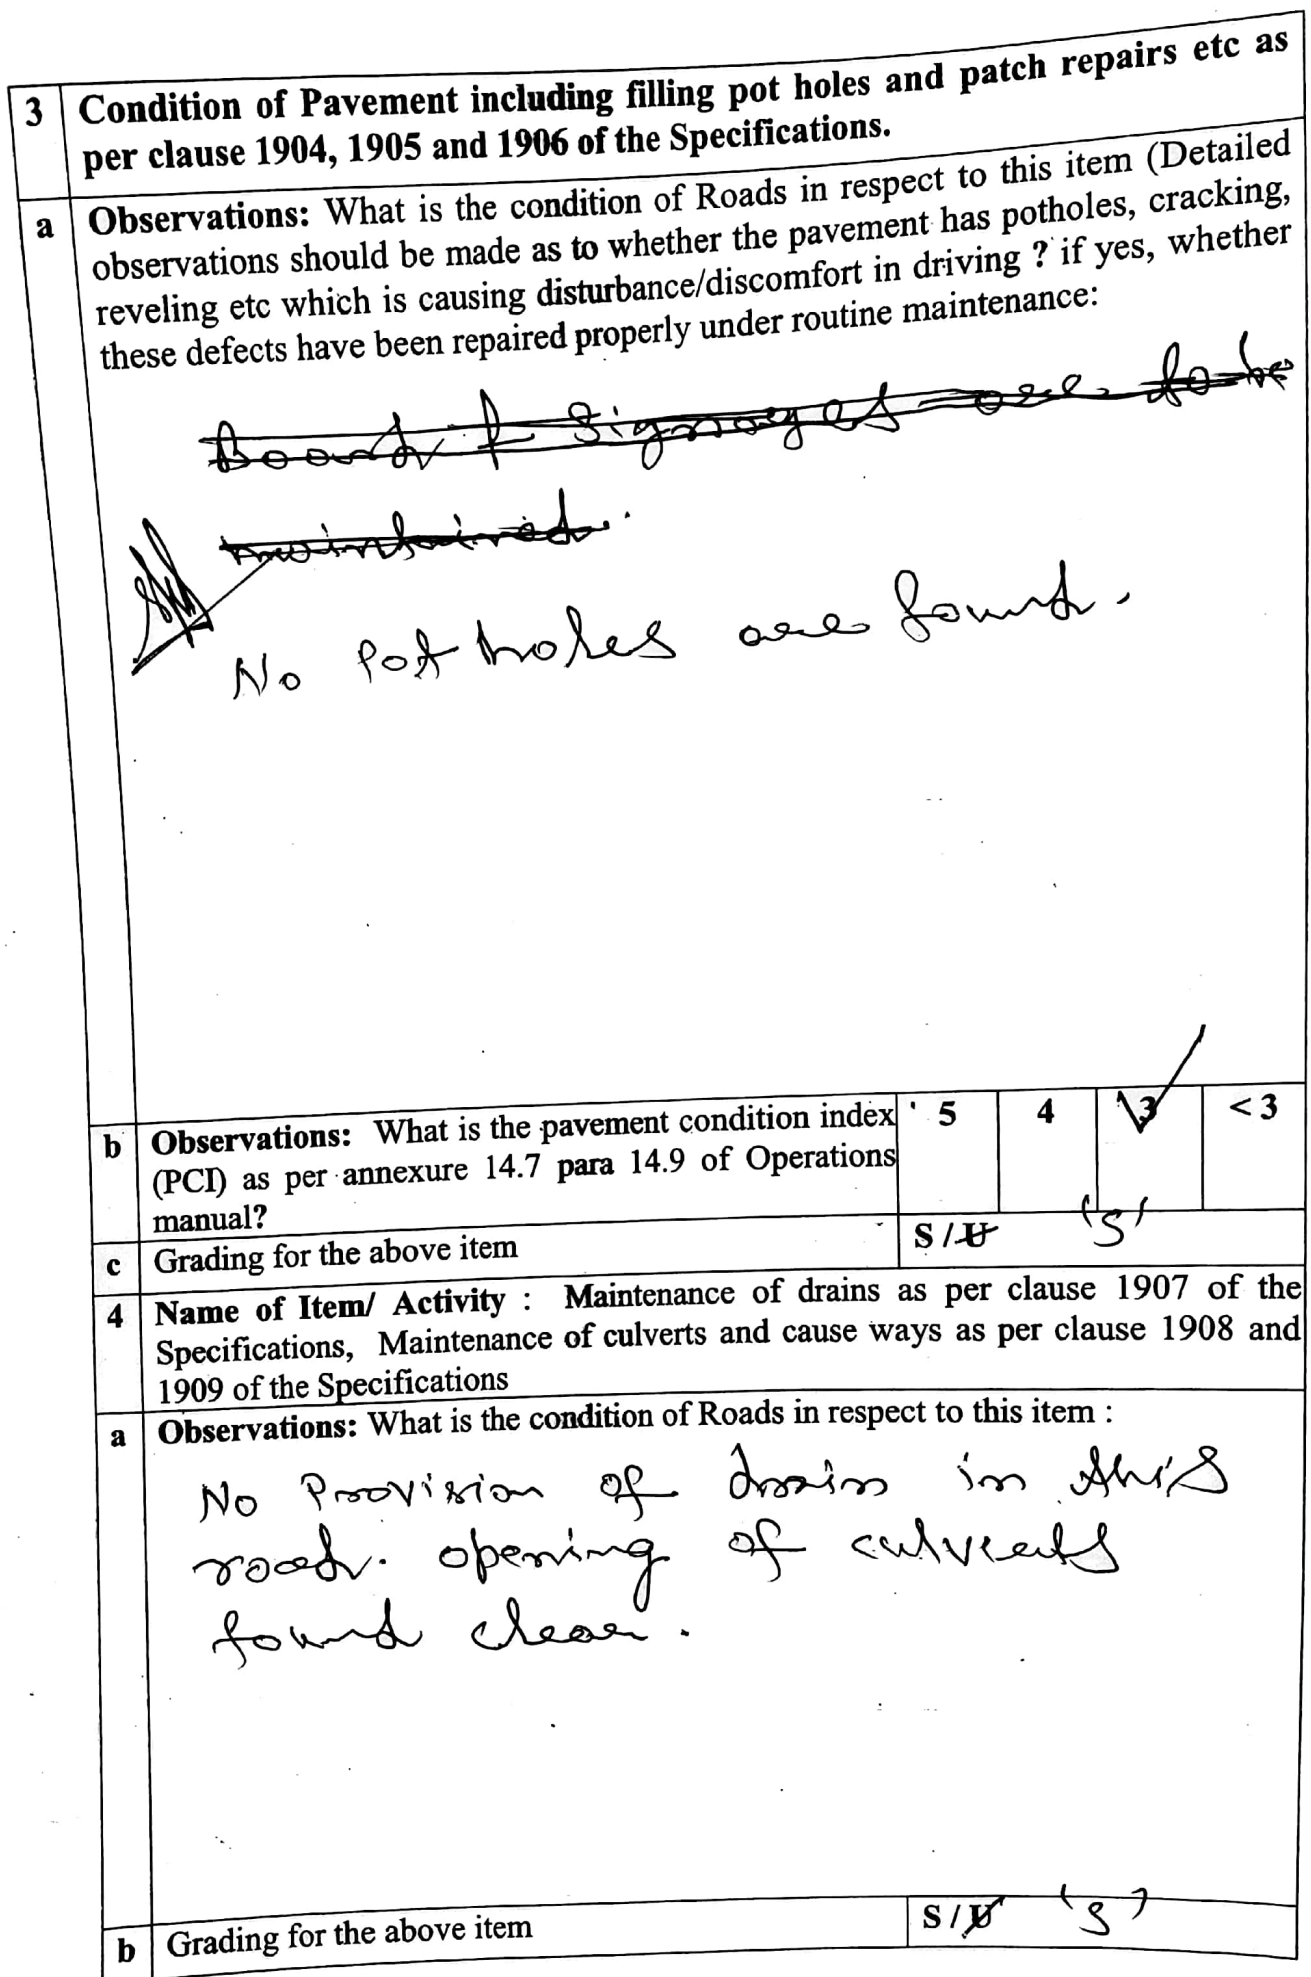 3 Condition of Pavement including filling pot holes and patch repairs etc as
per clause 1904, 1905 and 1906 of the Specifications.
a Observations: What is the condition of Roads in respect to this item (Detailed
observations should be made as to whether the pavement has potholes, cracking,
reveling etc which is causing disturbance/discomfort in driving ? if yes, whether
these defects have been repaired properly under routine maintenance:
Board & Signages are to be
maintained.
No Pot holes are found.
b Observations: What is the pavement condition index 5 4 3 <3
(PCI) as per annexure 14.7 para 14.9 of Operations
manual?
c Grading for the above item S / U 'S'
4 Name of Item/ Activity : Maintenance of drains as per clause 1907 of the
Specifications, Maintenance of culverts and cause ways as per clause 1908 and
1909 of the Specifications
a Observations: What is the condition of Roads in respect to this item :
No Provision of drain in this
road. opening of culverts
found clear.
b Grading for the above item S / U 'S'